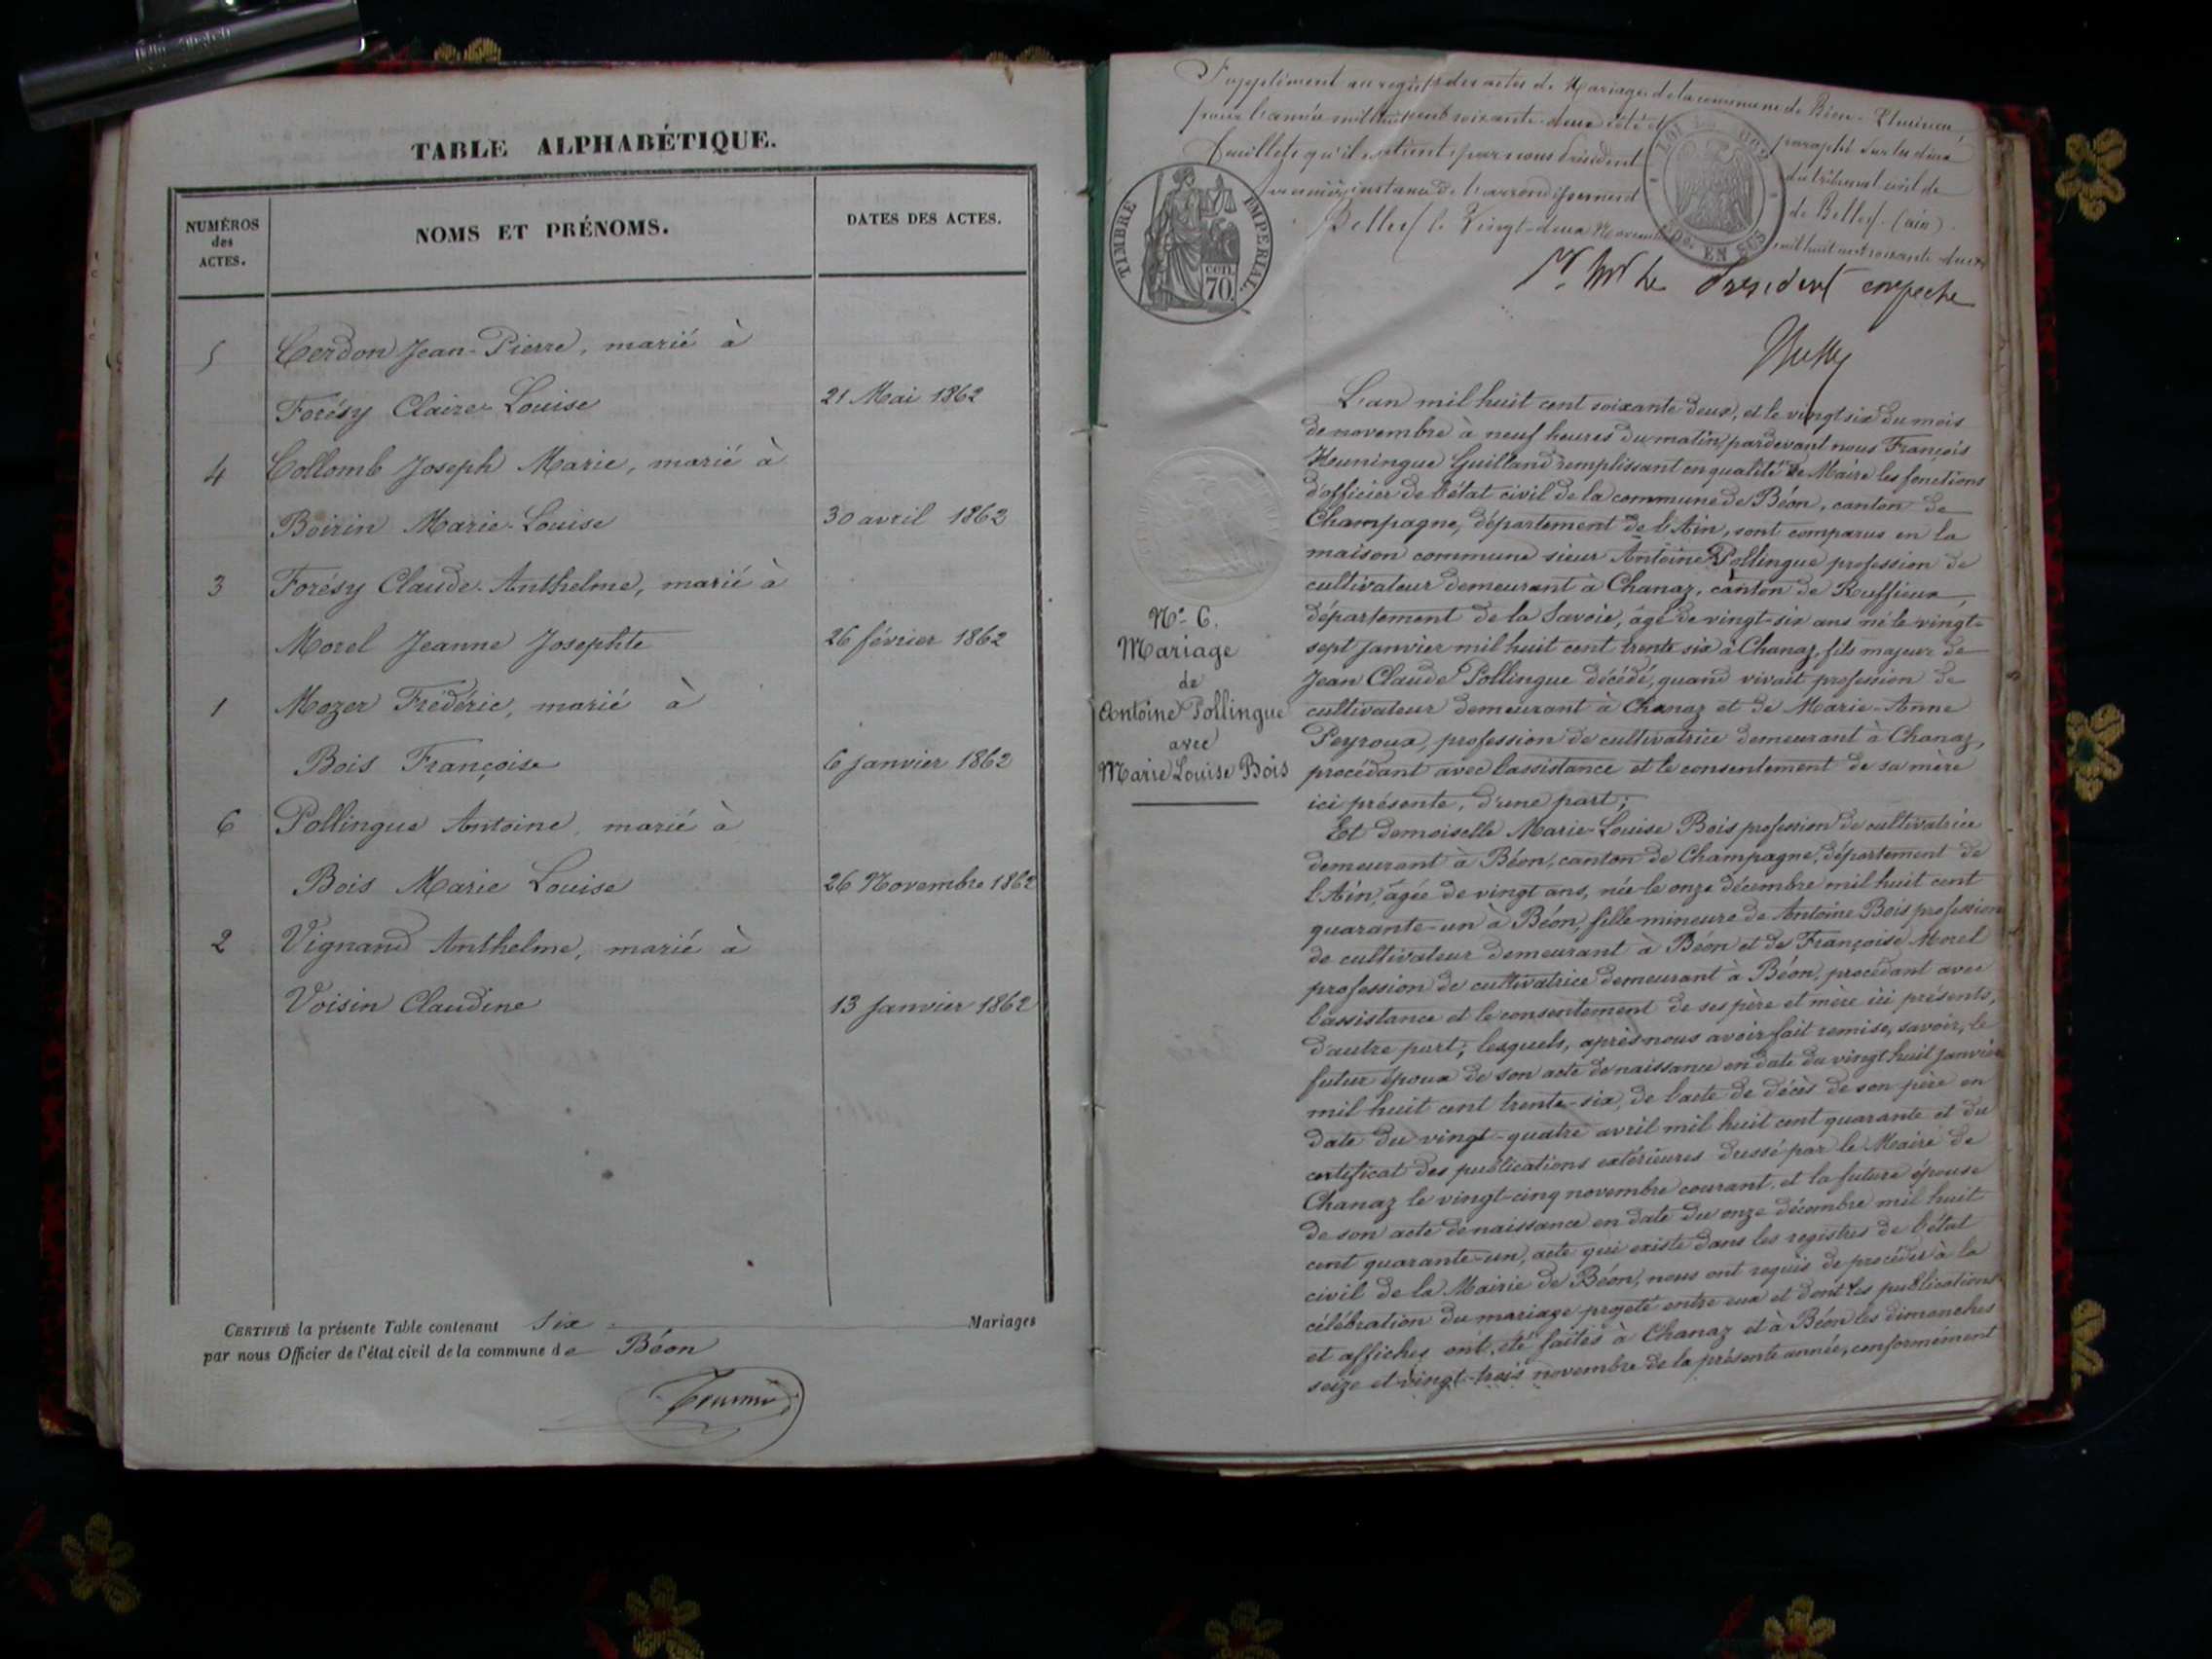 TABLE ALPHABÉTIQUE.
NUMÉROS
des
ACTES.
NOMS ET PRÉNOMS.
DATES DES ACTES.
5 Cerdon Jean-Pierre, marié à
Forésy Claire-Louise 21 Mai 1862
4 Collomb Joseph Marie, marié à
Boirin Marie-Louise 30 avril 1862
3 Forésy Claude-Anthelme, marié à
Morel Jeanne Josephte 26 février 1862
1 Mozer Frédéric, marié à
Bois Françoise 6 janvier 1862
6 Pollingue Antoine, marié à
Bois Marie Louise 26 Novembre 1862
2 Vignand Anthelme, marié à
Voisin Claudine 13 janvier 1862
CERTIFIÉ la présente Table contenant six Mariages
par nous Officier de l'état civil de la commune de Béon
Supplément au registre des actes de Mariage de la commune de Béon
pour l'année mil huit cent soixante-deux coté et paraphé sur les deux
feuillets qu'il contient par nous Président du tribunal civil de
première instance de l'arrondissement de Belley (ain).
Belley le Vingt-deux Novembre mil huit cent soixante-deux
Mr le Président empêché
TIMBRE IMPERIAL.
70 cen.
EN SUS
L'an mil huit cent soixante deux, et le vingt six du mois
de novembre à neuf heures du matin, pardevant nous François
Huningue Guilland remplissant en qualité de Maire les fonctions
d'officier de l'état civil de la commune de Béon, canton de
Champagne, département de l'Ain, sont comparus en la
maison commune sieur Antoine Pollingue profession de
cultivateur demeurant à Chanaz, canton de Ruffieux,
département de la Savoie, âgé de vingt-six ans né le vingt-
sept janvier mil huit cent trente six à Chanaz, fils majeur de
Jean Claude Pollingue décédé, quand vivait profession de
cultivateur demeurant à Chanaz et de Marie-Anne
Peyroux, profession de cultivatrice demeurant à Chanaz,
procédant avec l'assistance et le consentement de sa mère
ici présente, d'une part;
N° 6.
Mariage
de
Antoine Pollingue
avec
Marie Louise Bois
Et demoiselle Marie-Louise Bois profession de cultivatrice
demeurant à Béon, canton de Champagne, département de
l'Ain, âgée de vingt ans, née le onze décembre mil huit cent
quarante-un à Béon, fille mineure de Antoine Bois profession
de cultivateur demeurant à Béon et de Françoise Morel
profession de cultivatrice demeurant à Béon, procédant avec
l'assistance et le consentement de ses père et mère ici présents,
d'autre part; lesquels, après nous avoir fait remise, savoir, le
futur époux de son acte de naissance en date du vingt huit janvier
mil huit cent trente-six, de l'acte de décès de son père en
date du vingt-quatre avril mil huit cent quarante et du
certificat des publications extérieures dressé par le Maire de
Chanaz le vingt-cinq novembre courant, et la future épouse
de son acte de naissance en date du onze décembre mil huit
cent quarante-un, acte qui existe dans les registres de l'état
civil de la Mairie de Béon, nous ont requis de procéder à la
célébration du mariage projeté entre eux et dont les publications
et affiches ont été faites à Chanaz et à Béon les dimanches
seize et vingt-trois novembre de la présente année, conformément